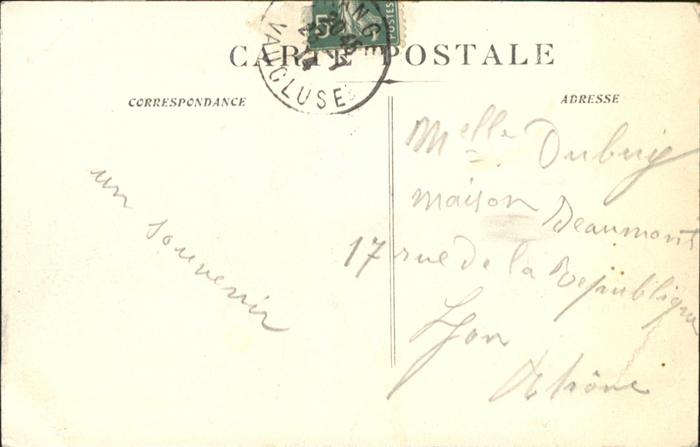 5c
POSTES
ANGE
VAUCLUSE
CARTE POSTALE
CORRESPONDANCE
ADRESSE
un souvenir
Melle Dubuy
maison Beaumont
17 rue de la République
Lyon
Rhône